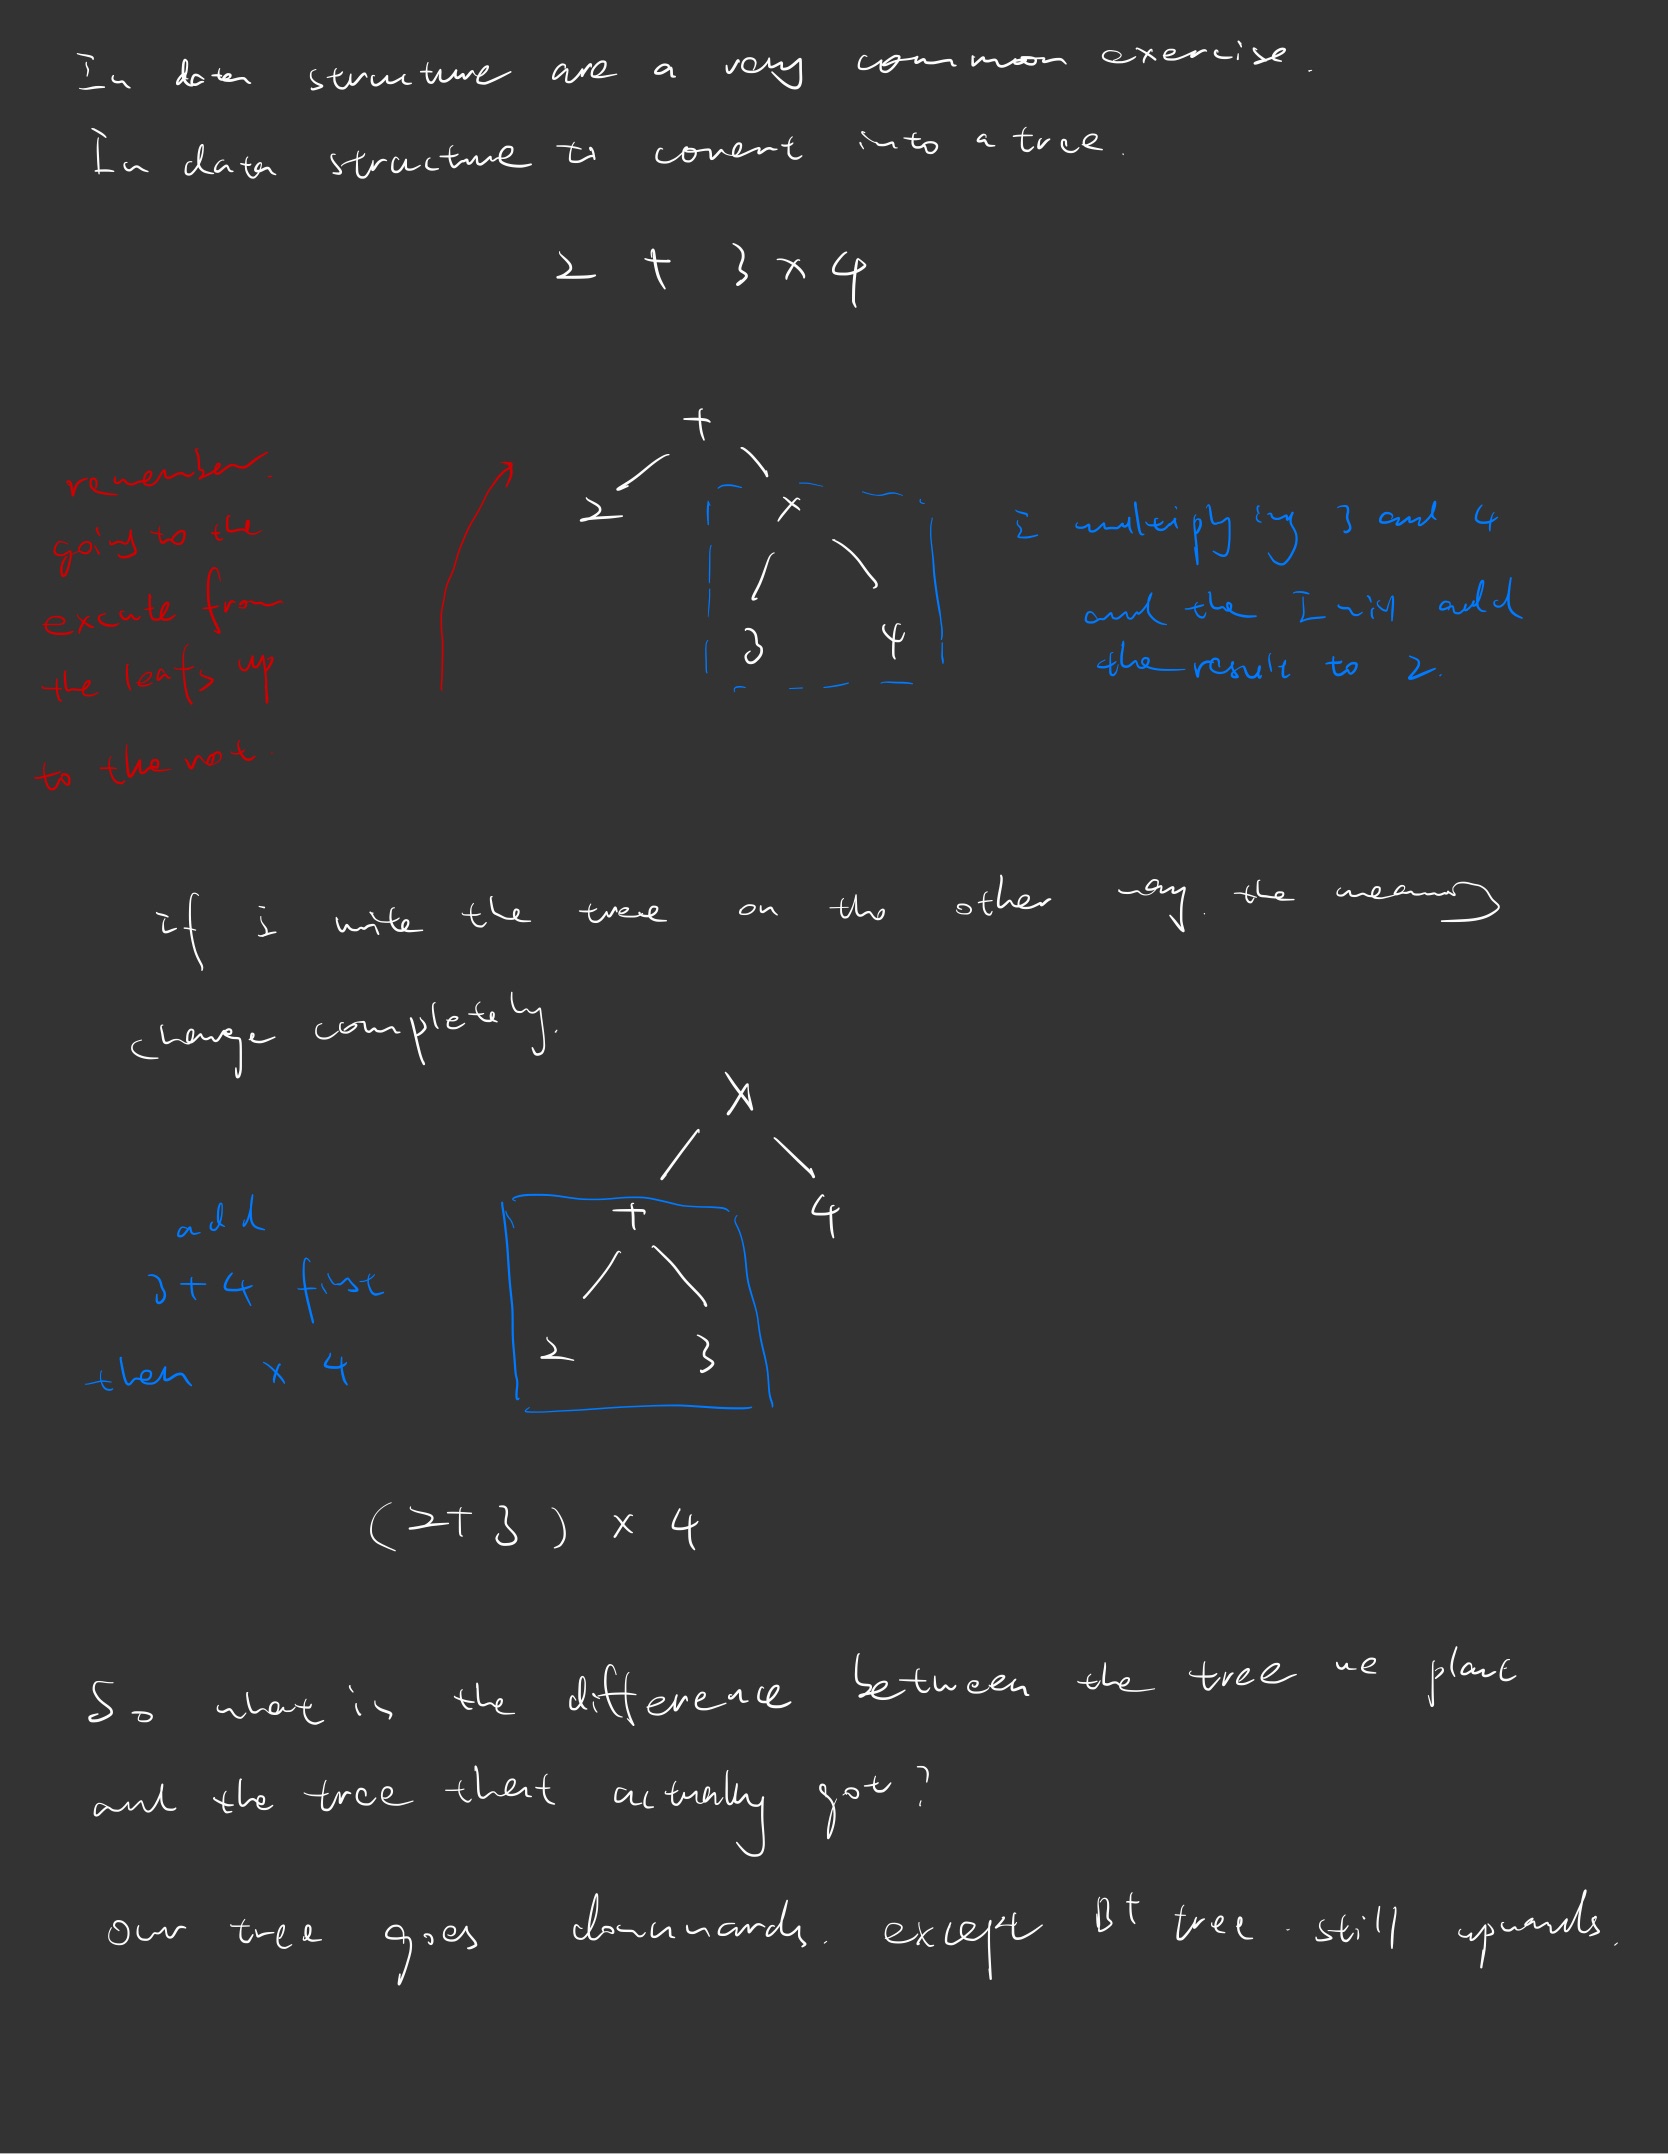 In data structure are a very common exercise.
In data structure to convert into a tree.
2 + 3 × 4
+
2 ×
3 4
remember.
going to the
excute from
the leafs up
to the root.
I multiplying 3 and 4
and the I will add
the result to 2.
if i write the tree on the other way. the meaning
change completely.
×
+ 4
2 3
add
3 + 4 first
then × 4
(2+3) × 4
So what is the difference between the tree we plant
and the tree that actually got?
our tree goes downwards. except B+ tree. still upwards.